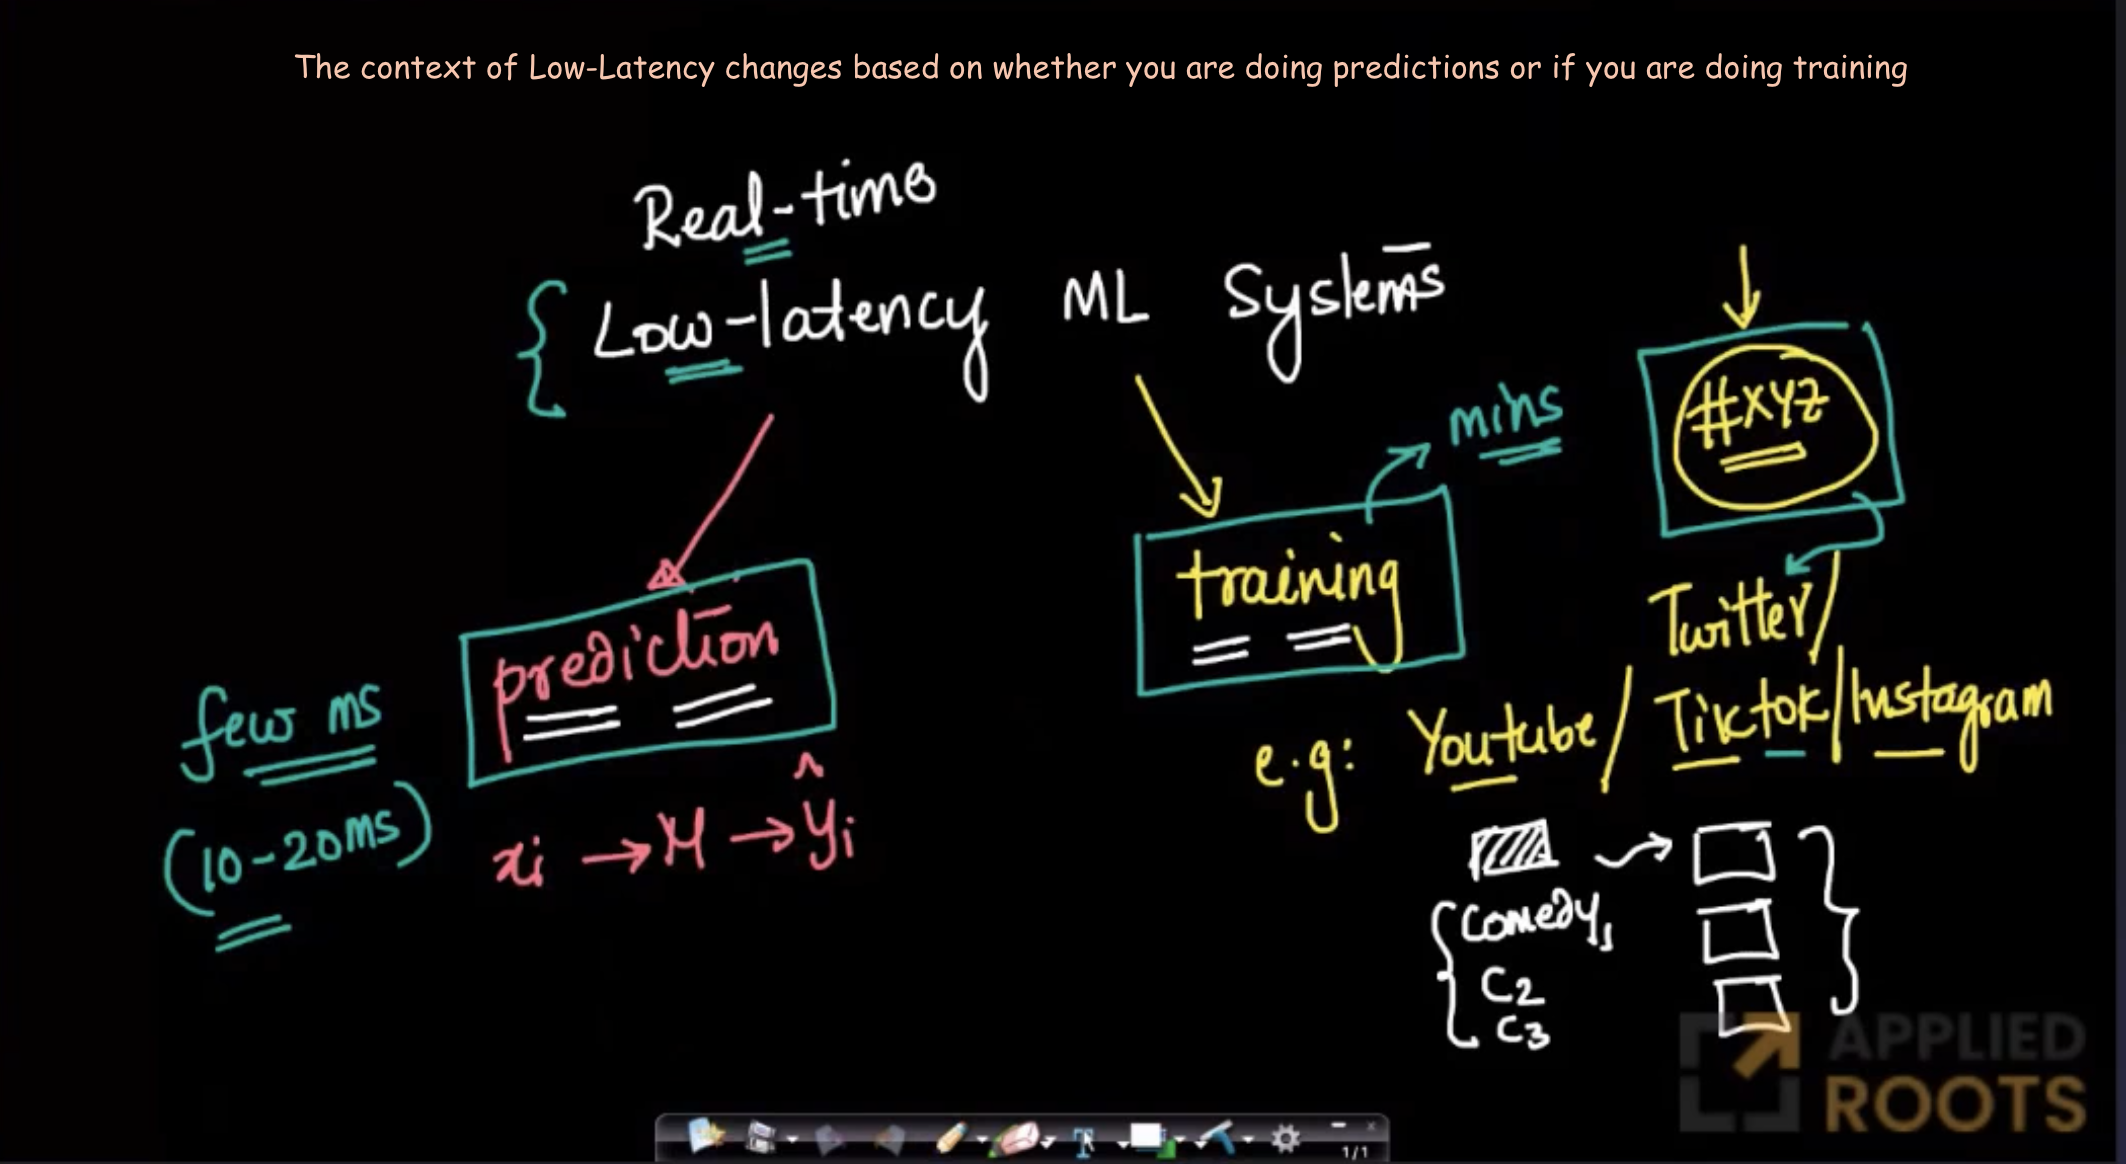 The context of Low-Latency changes based on whether you are doing predictions or if you are doing training
Real-time
Low-latency ML Systems
#XYZ
mins
training
prediction
few ms
(10-20ms)
xi → M → ŷi
Twitter/
e.g: Youtube/ Tiktok/Instagram
Comedy,
C2
C3
APPLIED
ROOTS
1/1